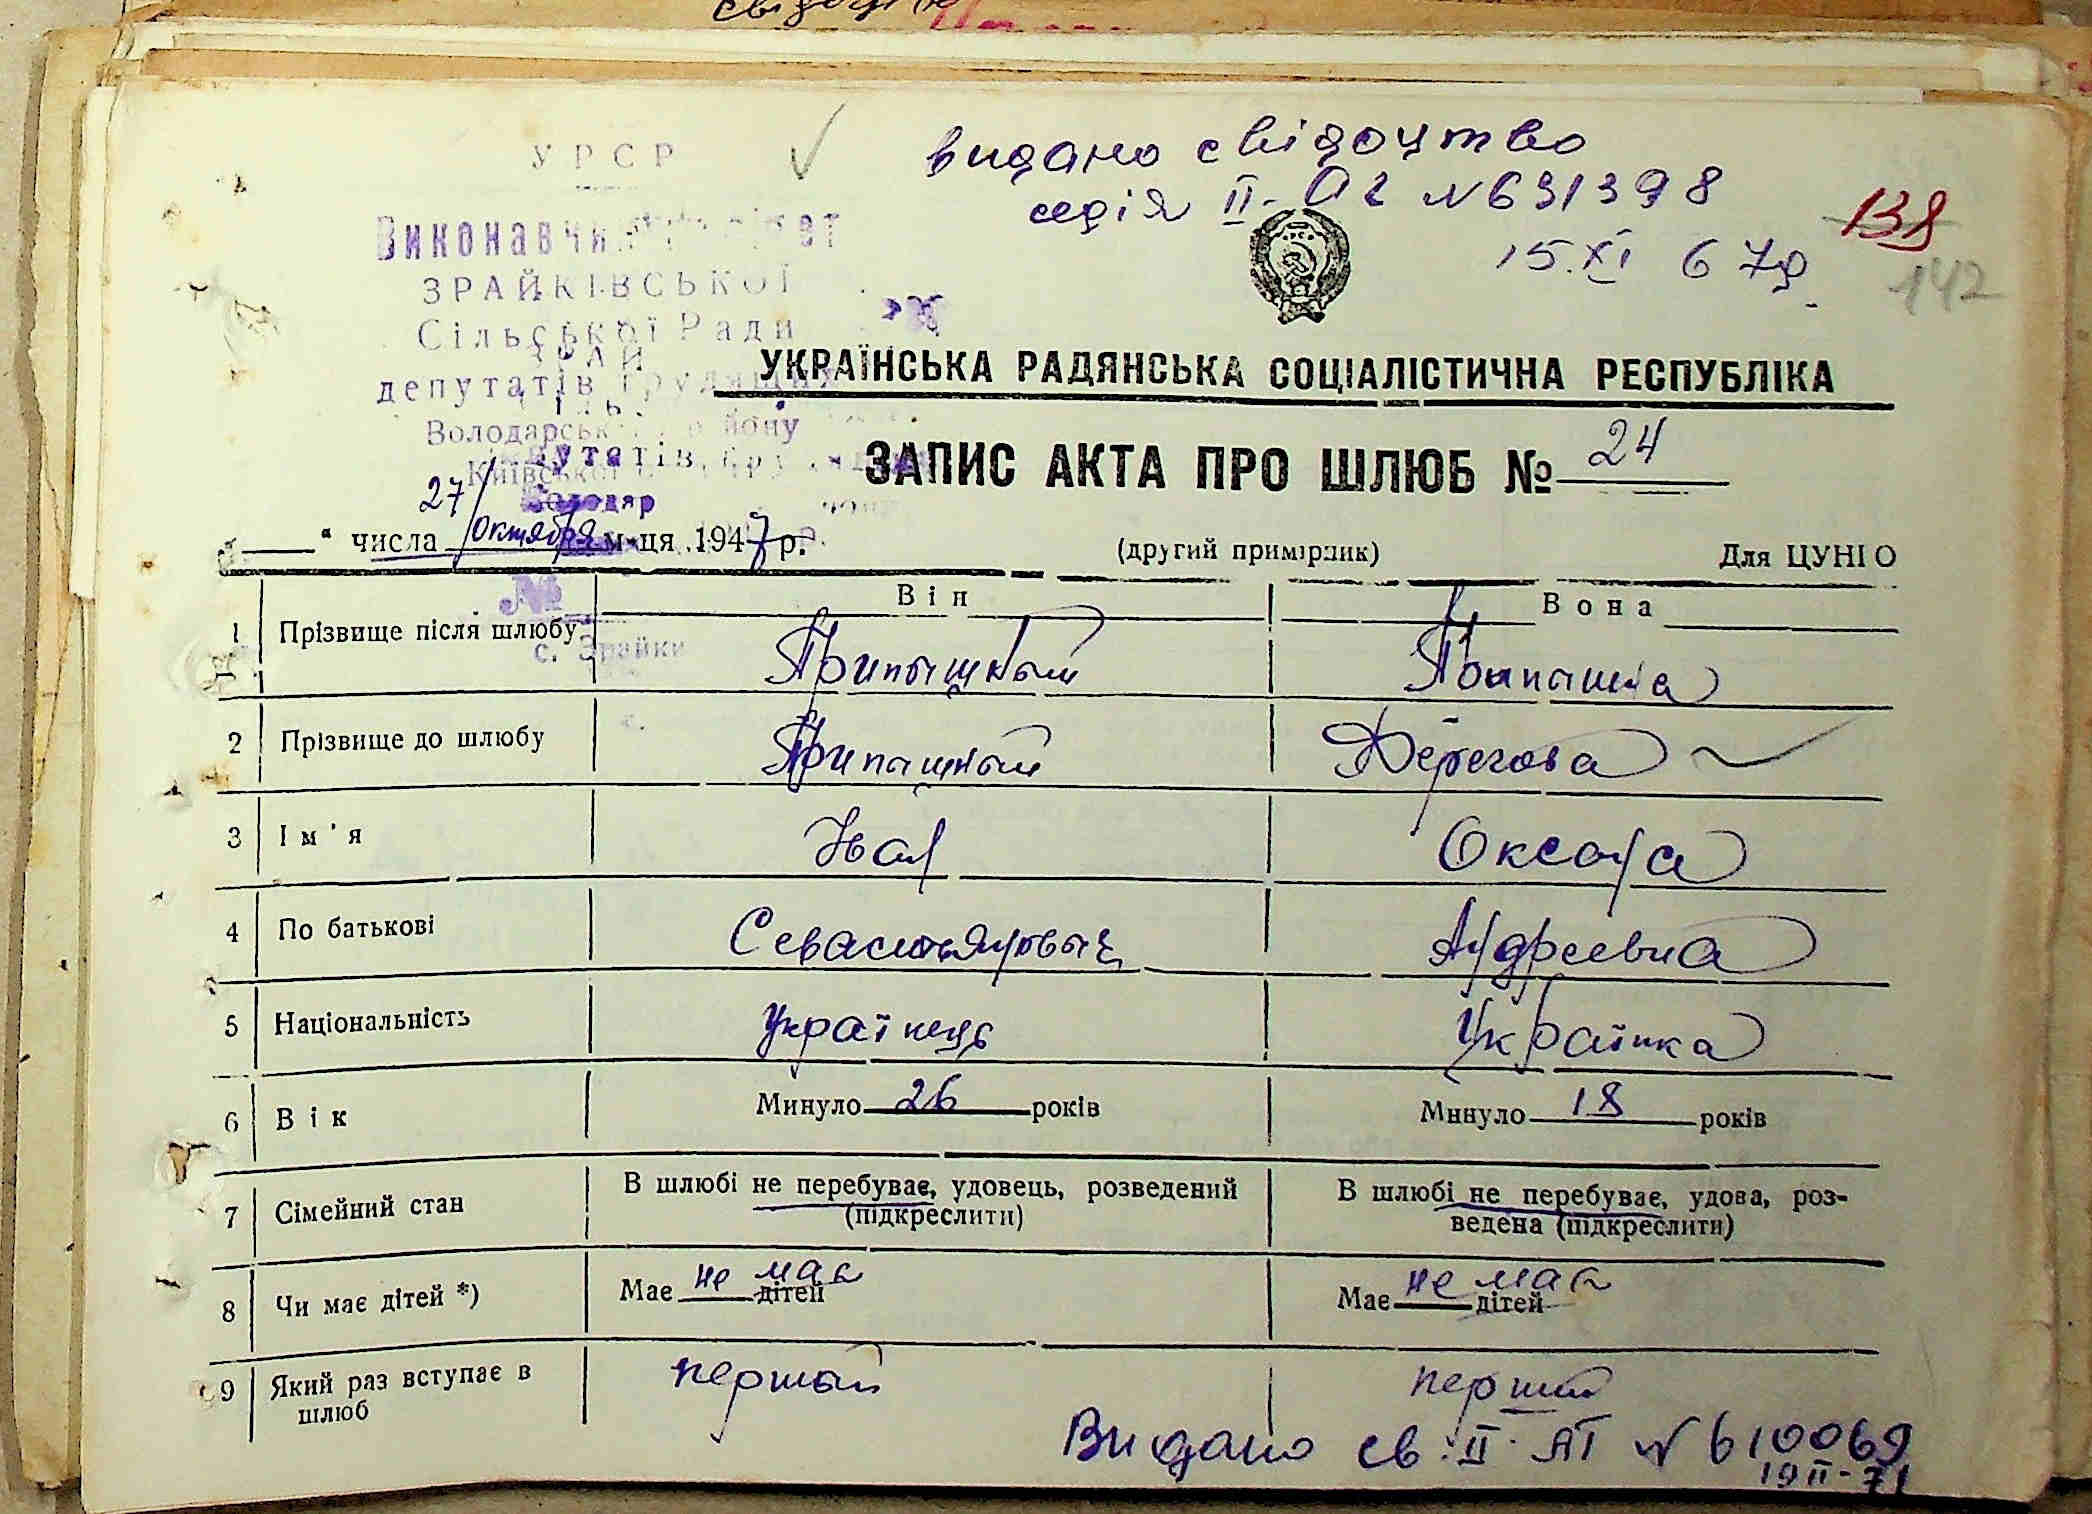 УРСР
видано свідоцтво
серія II-
№631398
138
15.XI 67р.
142
ЗРАЙКІВСЬКОЇ
Сільської Ради
депутатів трудящих
УКРАЇНСЬКА РАДЯНСЬКА СОЦІАЛІСТИЧНА РЕСПУБЛІКА
ЗАПИС АКТА ПРО ШЛЮБ № 24
27
" числа октября м-ця 1947 р.
(другий примірник)
Для ЦУНГО
Він
Вона
1 Прізвище після шлюбу
№
с. Зрайки
2 Прізвище до шлюбу
3 Ім'я Іван Оксана
4 По батькові Севастьянович Андреевна
5 Національність українець Українка
6 Вік Минуло 26 років Минуло 18 років
7 Сімейний стан В шлюбі не перебуває, удовець, розведений (підкреслити) В шлюбі не перебуває, удова, роз-
ведена (підкреслити)
8 Чи має дітей *) Має не має дітей Має не має дітей
9 Який раз вступає в шлюб первый перший
Видано св. II-АП № 610069
19 II-71